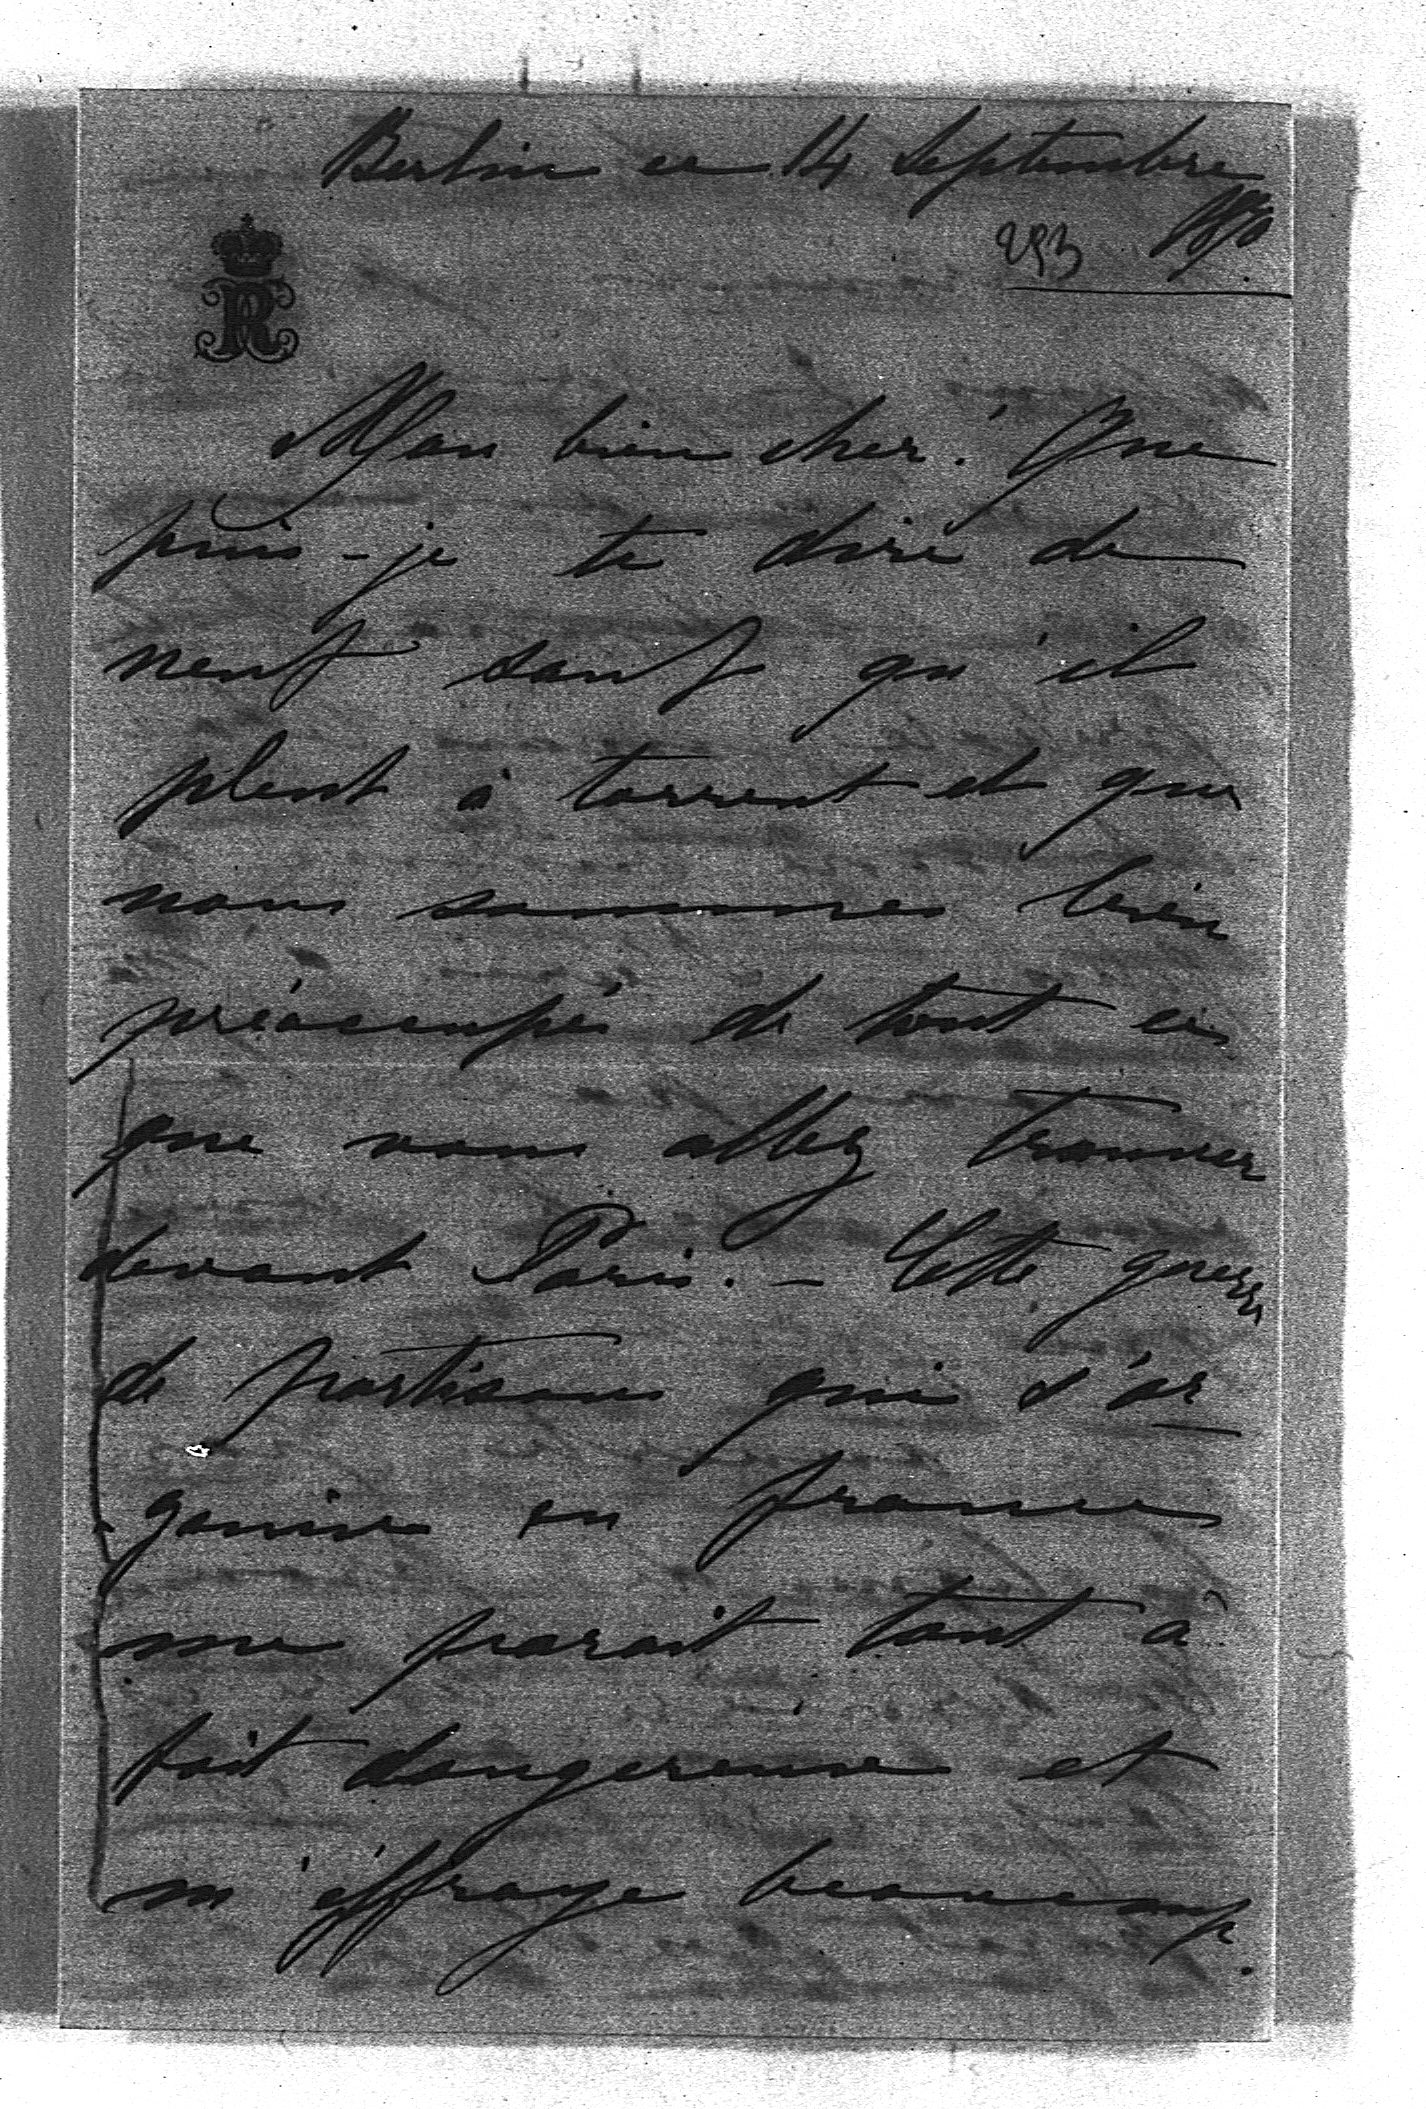 Berlin ce 14 Septembre
1870
293
R
Mon bien cher! Que
puis-je te dire de
neuf sauf qu'il
pleut à torrent et que
nous sommes bien
préoccupés de tout ce
que vous allez trouver
devant Paris. — Cette guerre
de partisans qui s'or
ganise en france
me parait tout à
fait dangereuse et
m'éffraye beaucoup.